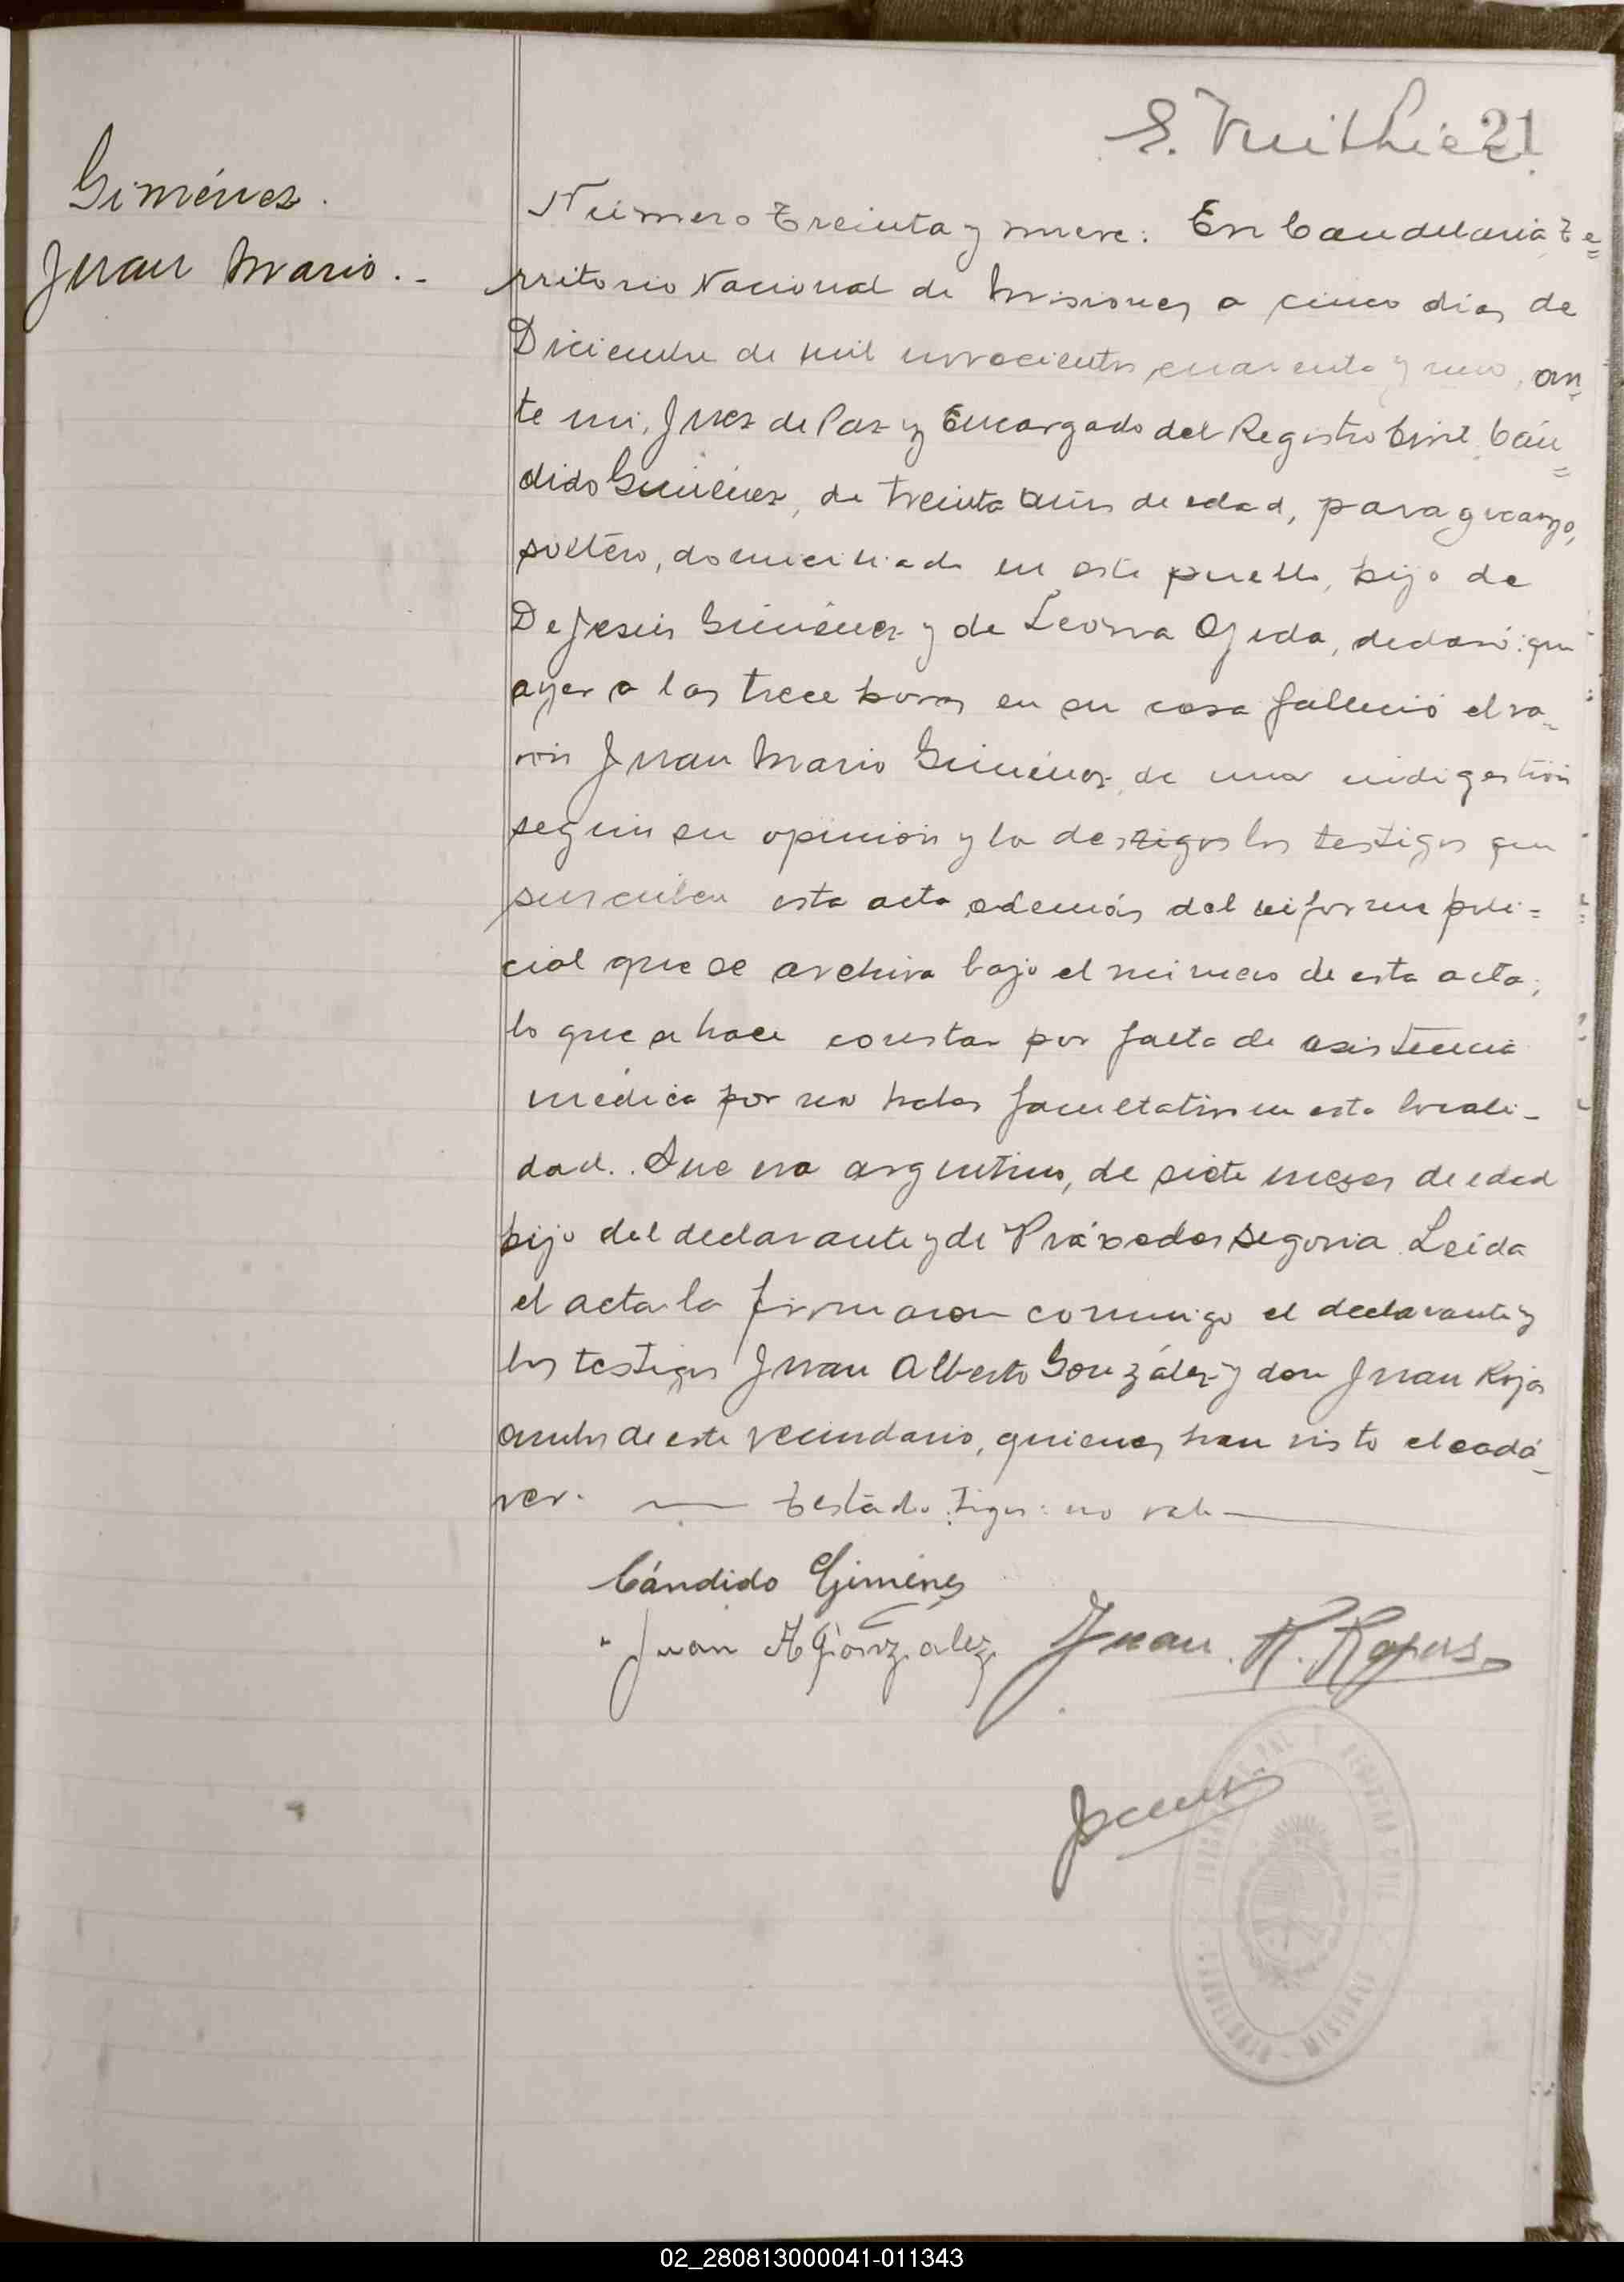 21
Giménez.
Juan Mario.-
Número treinta y nueve: En Candelaria, Te=
rritorio Nacional de Misiones a cinco días de
Diciembre de mil novecientos cuarenta y uno, an=
te mi, Juez de Paz y Encargado del Registro Civil, Cán=
dido Giménez, de treinta años de edad, paraguayo,
soltero, domiciliado en este pueblo, hijo de
De Jesús Giménez y de Leona Ojeda, declaró: que
ayer a las trece horas en su casa falleció el va-
rón Juan Mario Giménez, de una indigestión
según su opinión y la de tigos los testigos que
suscriben esta acta además del informe poli=
cial que se archiva bajo el número de esta acta;
lo que se hace constar por falta de asistencia
médica por no haber facultativo en esta locali-
dad. Que era argentino, de siete meses de edad
hijo del declarante y de Práxedes Segovia. Leída
el acta la firmaron conmigo el declarante y
los testigos Juan Alberto González y don Juan Rojas
ambos de este vecindario, quienes han visto el cadá-
ver. — Testado: tigos: no vale —
Cándido Giménez
Juan A González Juan R. Rojas
REGISTRO CIVIL
CANDELARIA - MISIONES
02_280813000041-011343